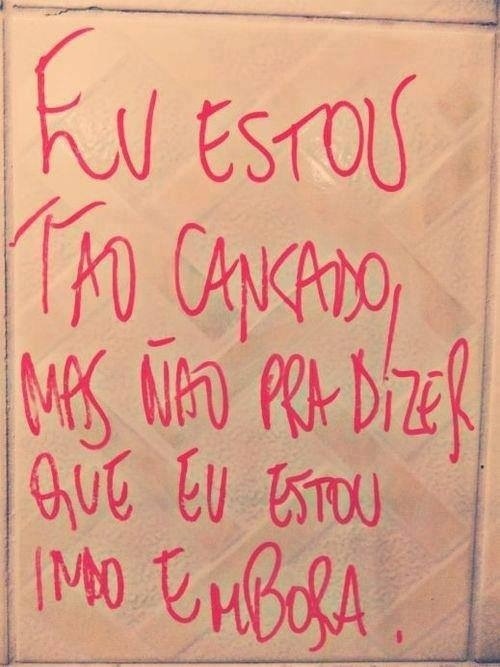 EU ESTOU
TAO CANCADO,
MAS ÑAO PRA DIZER
QUE EU ESTOU
INDO EMBORA.